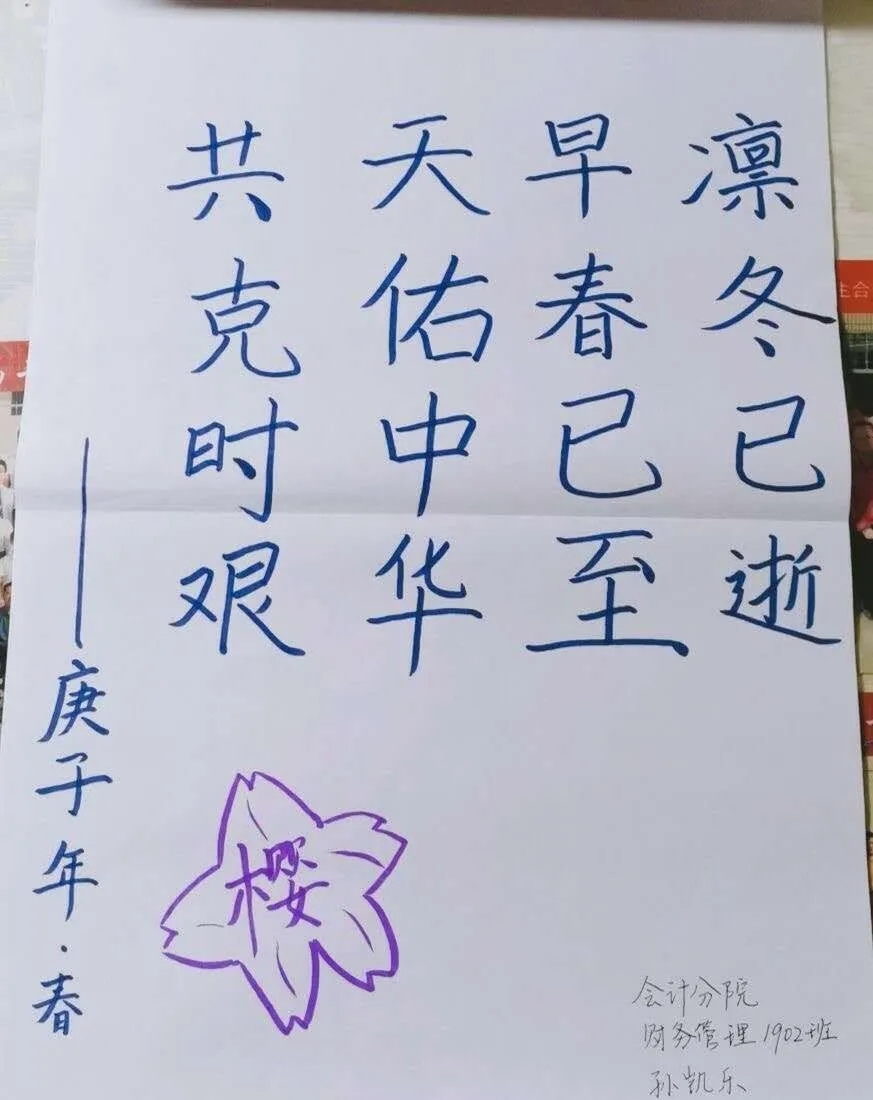 凛冬已逝
早春已至
天佑中华
共克时艰
——庚子年·春
樱
会计分院
财务管理1902班
孙凯乐
生合